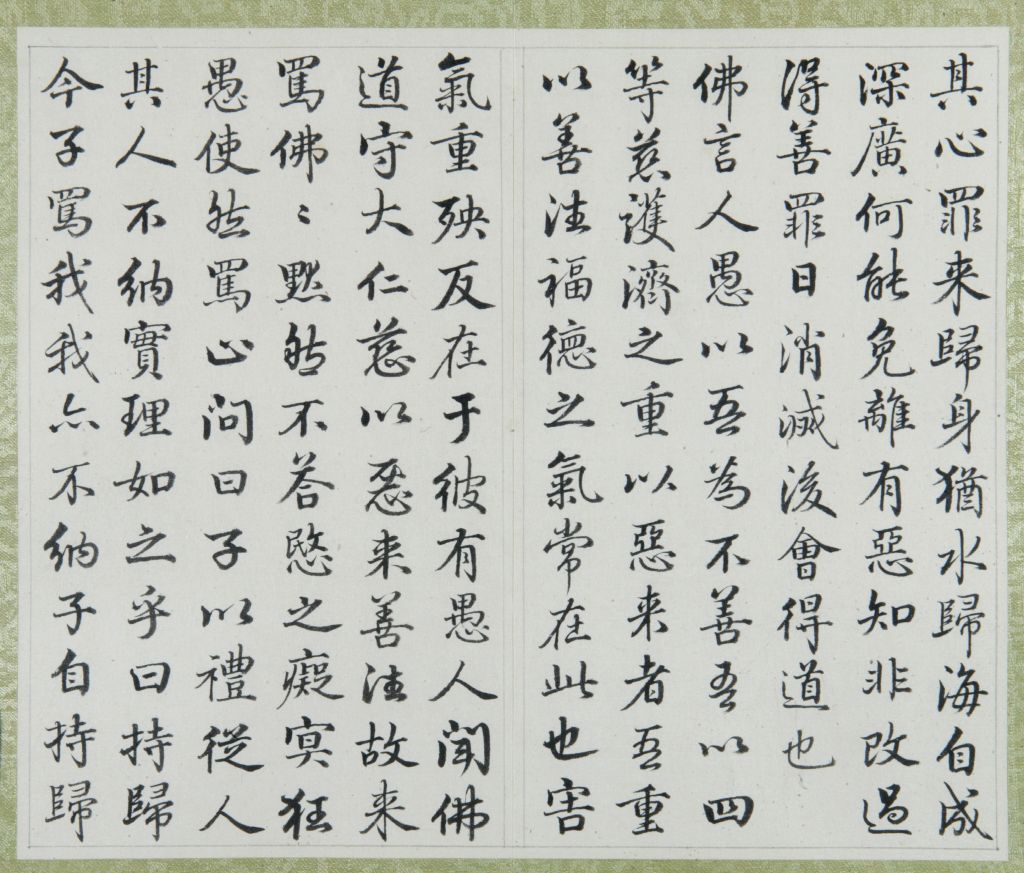 其心罪来歸身猶水歸海自成
深廣何能免離有惡知非改過
得善罪日消滅後會得道也
佛言人愚以吾為不善吾以四
等慈護濟之重以惡来者吾重
以善往福德之氣常在此也害
氣重殃反在于彼有愚人聞佛
道守大仁慈以惡来善往故来
罵佛〻默然不答愍之癡冥狂
愚使然罵止问曰子以禮從人
其人不納實理如之乎曰持歸
今子罵我我亦不納子自持歸